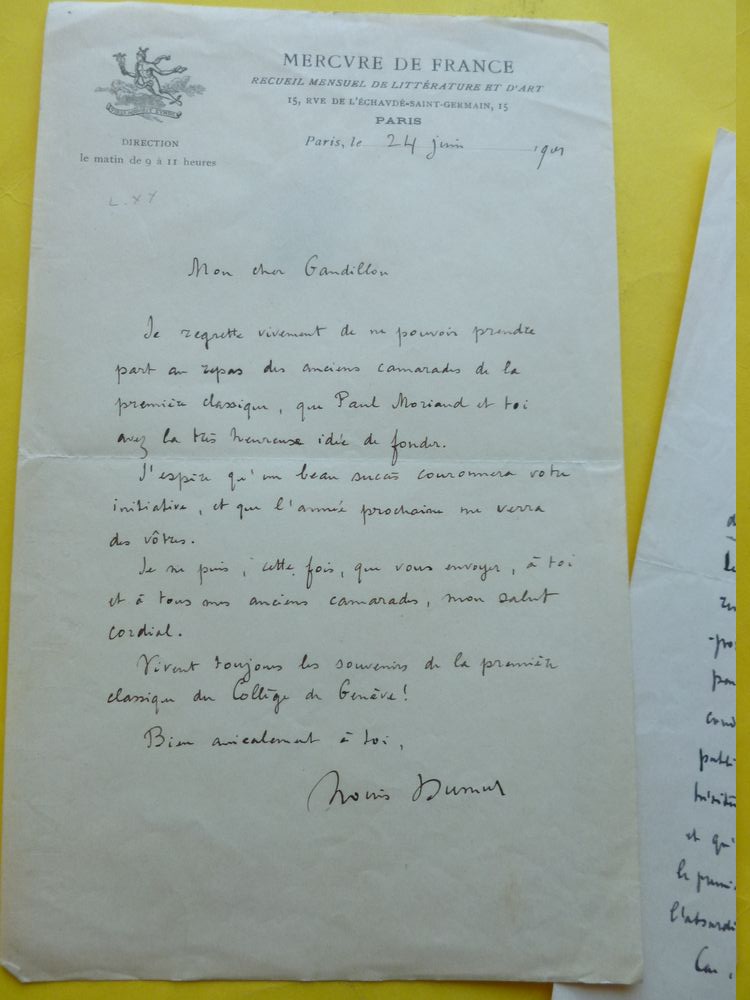 MERCVRE DE FRANCE
RECUEIL MENSUEL DE LITTÉRATURE ET D'ART
15, RVE DE L'ÉCHAVDÉ-SAINT-GERMAIN, 15
PARIS
DIRECTION
le matin de 9 à 11 heures
Paris, le 24 juin 1901
L. XX
Mon cher Gandillon
Je regrette vivement de ne pouvoir prendre
part au repas des anciens camarades de la
première classique, que Paul Moriaud et toi
avez la très heureuse idée de fonder.
J'espère qu'un beau succès couronnera votre
initiative, et que l'année prochaine me verra
des vôtres.
Je ne puis, cette fois, que vous envoyer, à toi
et à tous mes anciens camarades, mon salut
cordial.
Vivent toujours les souvenirs de la première
classique du Collège de Genève!
Bien amicalement à toi,
Louis Dumur
et qu'
le prem
l'absurdi
Car